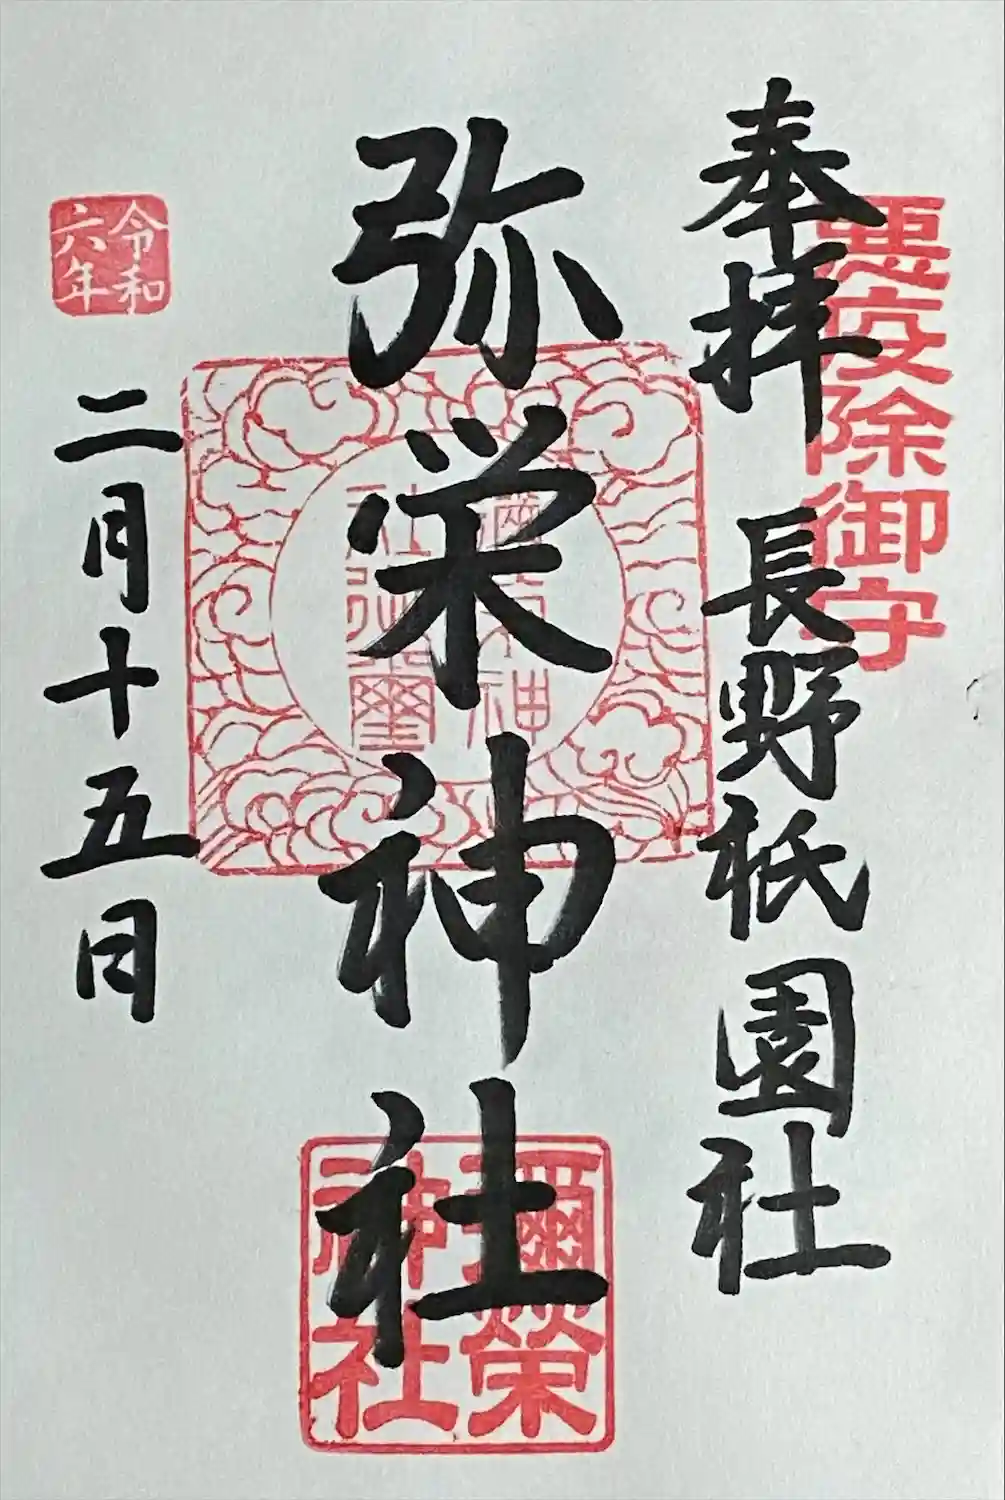 悪疫除御守
奉拝 長野祇園社
弥栄神社
彌榮
神社
令和
六年
二月十五日